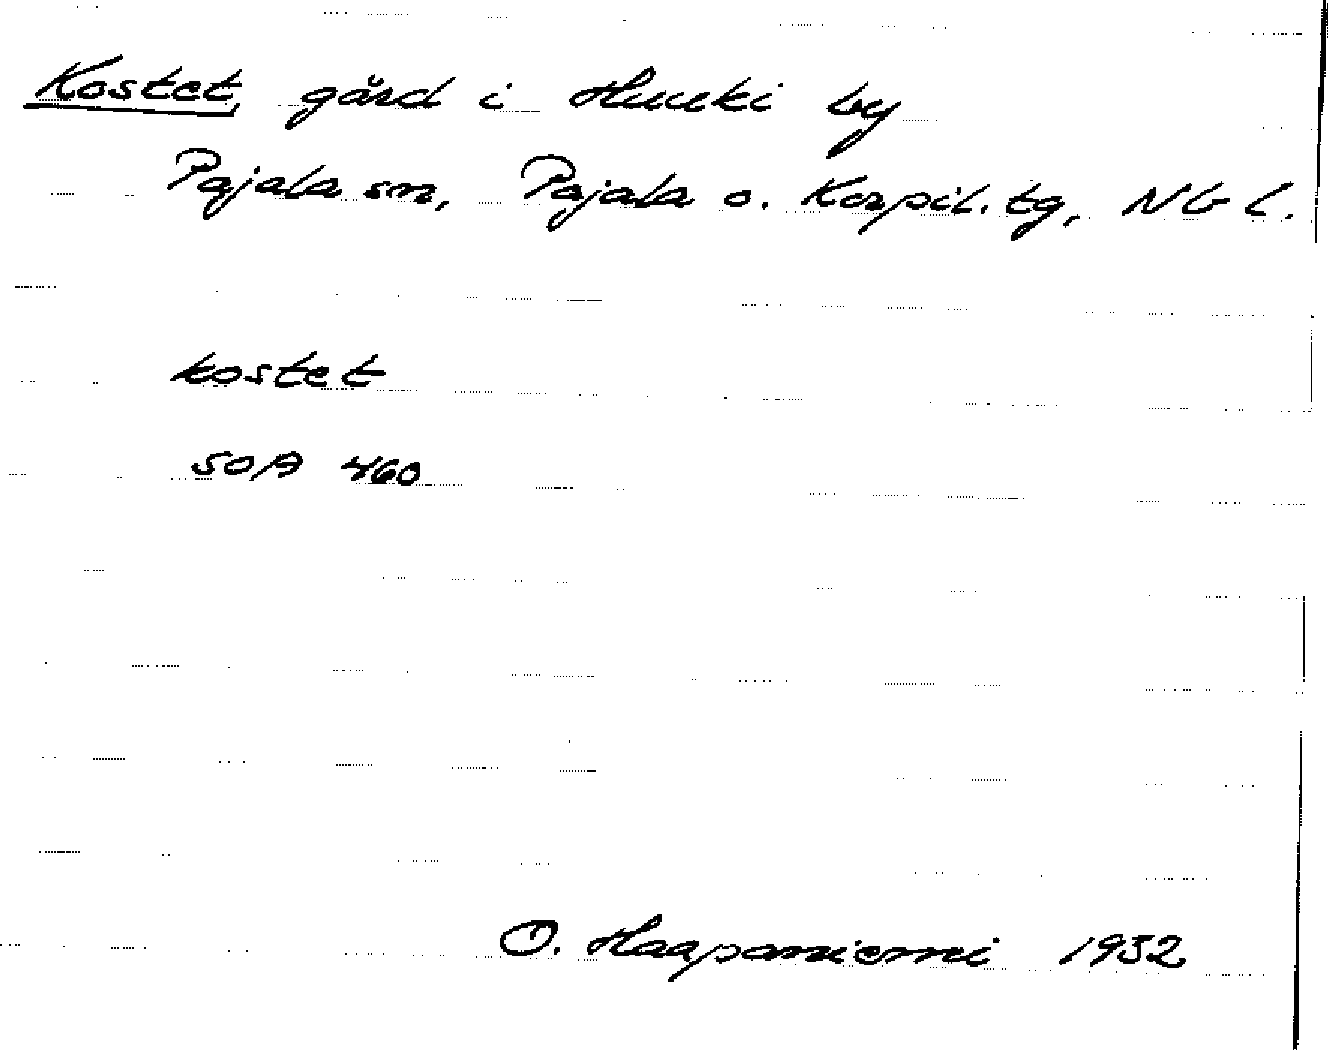 Kostet, gård i Huuki by
Pajala sn, Pajala o. Korpil. tg, NB L.
kostet
SOA 460
O. Haapaniemi 1932